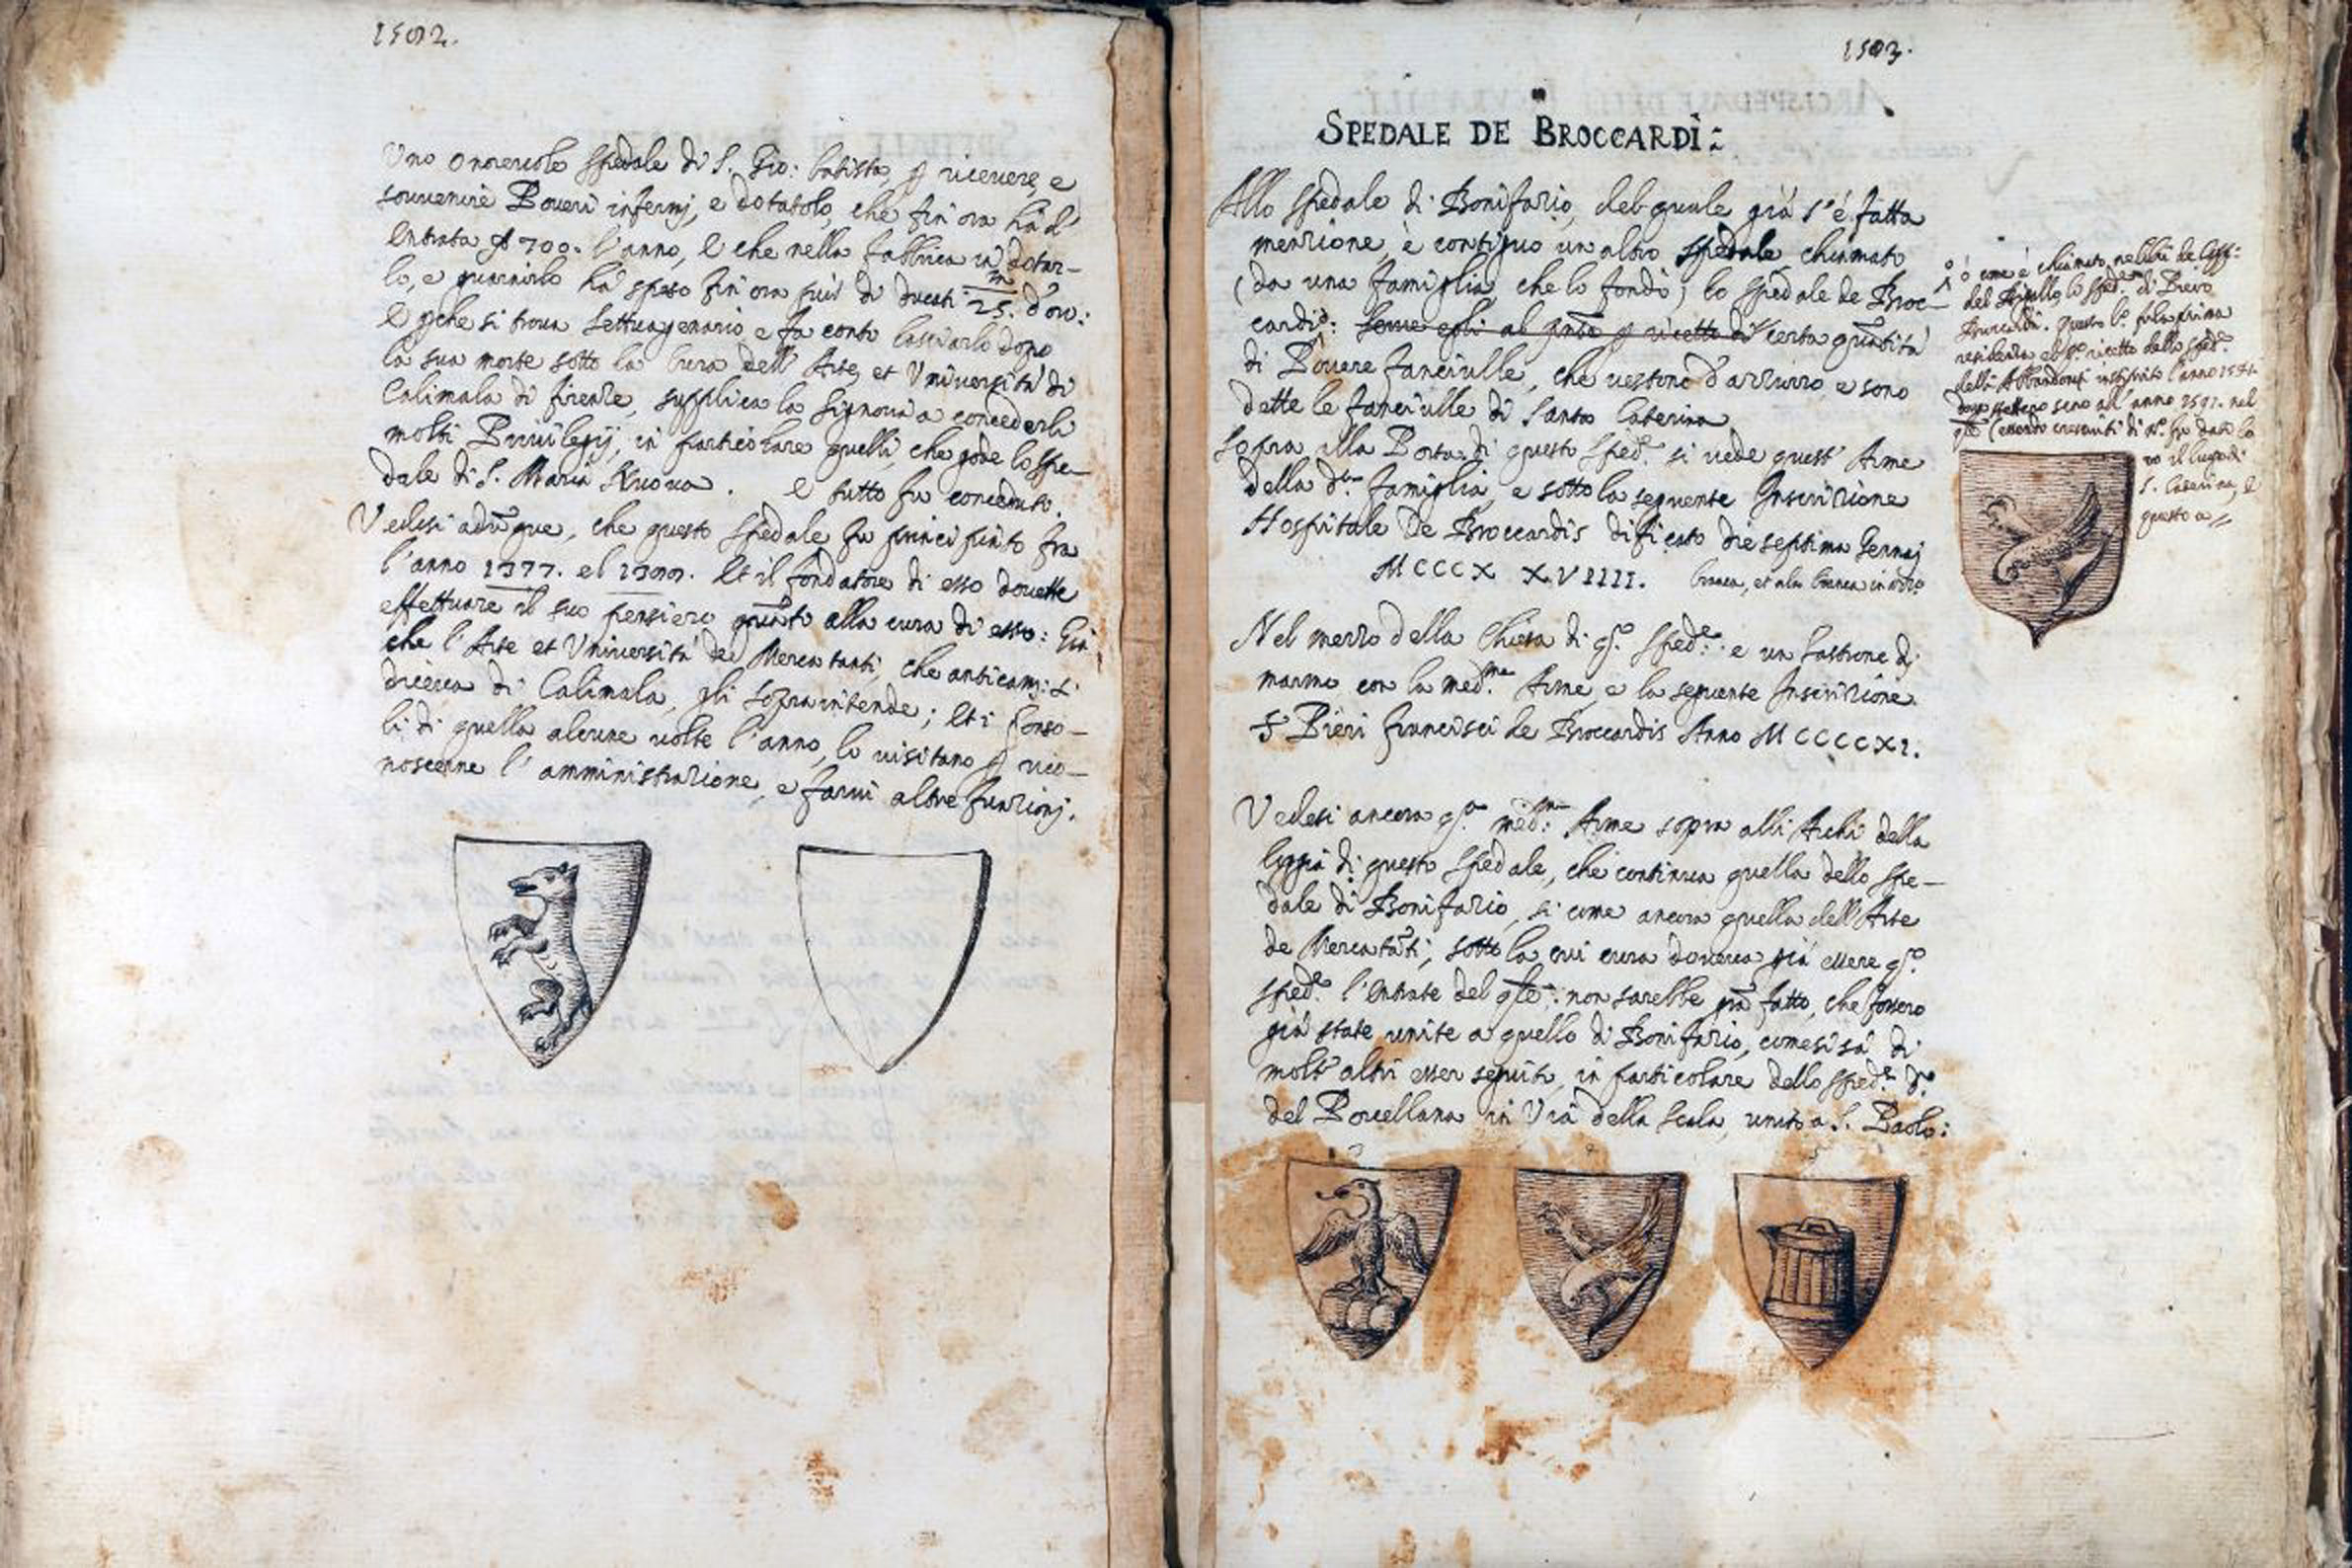 1502.
Uno onorevole spedale di S. Gio: batista, p ricevere, e
sovvenire Poveri infermj, e dotatolo, che fin ora hà d'
Entrata 700. l'anno, e che nella fabbrica in dotar-
lo, e guarnirlo hà speso fin ora più di ducati 25. d'oro:
E pche si trova settuagenario e fa conto lasciarlo dopo
la sua morte sotto la Cura dell' Arte, et Università di
Calimala di firenze, supplica la Signoria a concederli
molti Privilegij, in particolare quelli, che gode lo Spe-
dale di S. Maria Nuova. e tutto fu conceduto.
Vedesi adūque, che questo Spedale fu principiato fra
l'anno 1377. el Et il fondatore di esso dovette
effettuare il suo pensiero quāto alla cura di esso: Già
che l'Arte et Università de Mercatanti, che anticam: si
diceva di Calimala, gli sopraintende; Et i Conso-
li di quella alcune volte l'anno, lo visitano p rico-
noscerne l'amministrazione, e farvi altre funzionj.
1503.
SPEDALE DE BROCCARDI:
Allo Spedale di Bonifazio, del quale già s'è fatta
menzione, è contiguo un altro spedale chiamato
(da una famiglia che lo fondò) lo Spedale de Broc-
cardi: Serve egli al p ricetto di certa quātità
di Povere fanciulle, che vestono d'azzurro, e sono
dette le fanciulle di Santa Caterina
Sopra alla Porta di questo Sped.e si vede quest' Arme
della d.a famiglia, e sotto la seguente Inscrizione
Hospitale De Broccardis dificato die septima Gennaj
MCCCX X.VIIII. branca, et ala bianca in
Nel mezzo della Chiesa di q.o Sped.e e un Lastrone di
marmo con la med.ma Arme, e la seguente Inscrizione
S Pieri francisci de Broccardis Anno MCCCCXI.
Vedesi ancora q.a med.ma Arme sopra alli Archi della
loggia di questo Spedale, che continua quella dello Spe-
dale di Bonifazio, si come ancora quella dell'Arte
de Mercatāti, sotto la cui cura doveva già essere q.o
Sped.e l'Entrate del qle: non sarebbe grā fatto, che fossero
già state unite a quello di Bonifazio, come si sà di
molti altri esser seguito, in particolare dello Sped.e d.o
del Porcellana in Via della Scala, unito a S. Paolo:
ò come è chiamato, ne libri de
del Sigillo lo Sped.e di Piero
Broccardi. Questo fu la prima
residenza, et ricetto dello Sped.e
delli Abbandonati instituito l'anno
dove stettero sino all'anno 1591. nel
qle (essendo cresciuti di n.o fu dato lo
ro il luogo di
S. Caterina, e
questo a